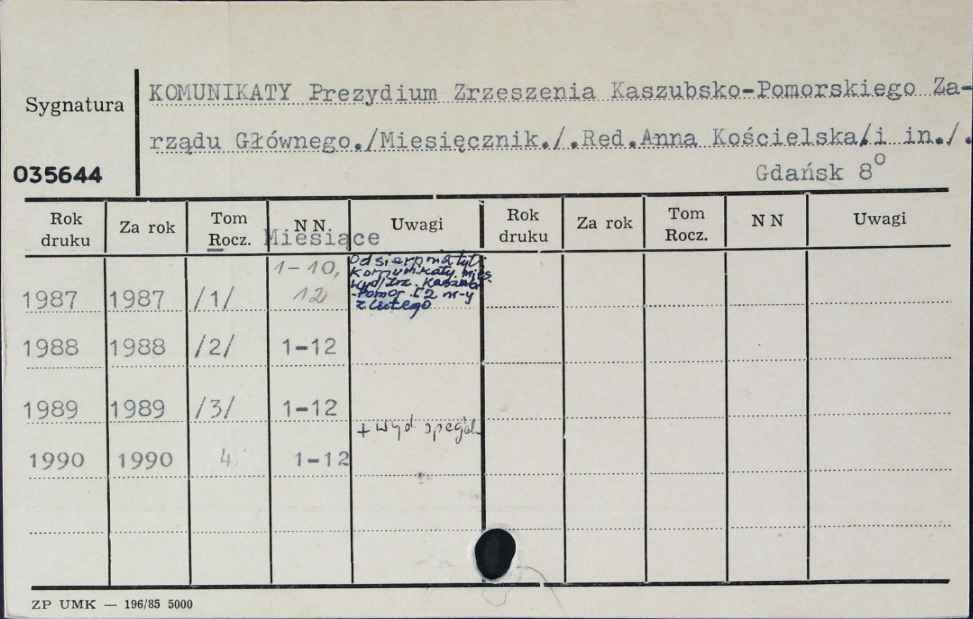 KOMUNIKATY Prezydium Zrzeszenia Kaszubsko-Pomorskiego Za-
Sygnatura
rządu Głównego./Miesięcznik./.Red.Anna Kościelska/i in./.
035644
Gdańsk 8°
Rok druku Za rok Tom Rocz. N N. Uwagi Rok druku Za rok Tom Rocz. N N Uwagi
Miesiące
1-10, Od sierpnia tyt.
Komunikaty mies.
1987 1987 /1/ 12 Zrz. Kaszub
-Pomor. 2 nr-y
z lutego
1988 1988 /2/ 1-12
1989 1989 /3/ 1-12
+ wyd specjal.
1990 1990 4 1-12
ZP UMK — 196/85 5000